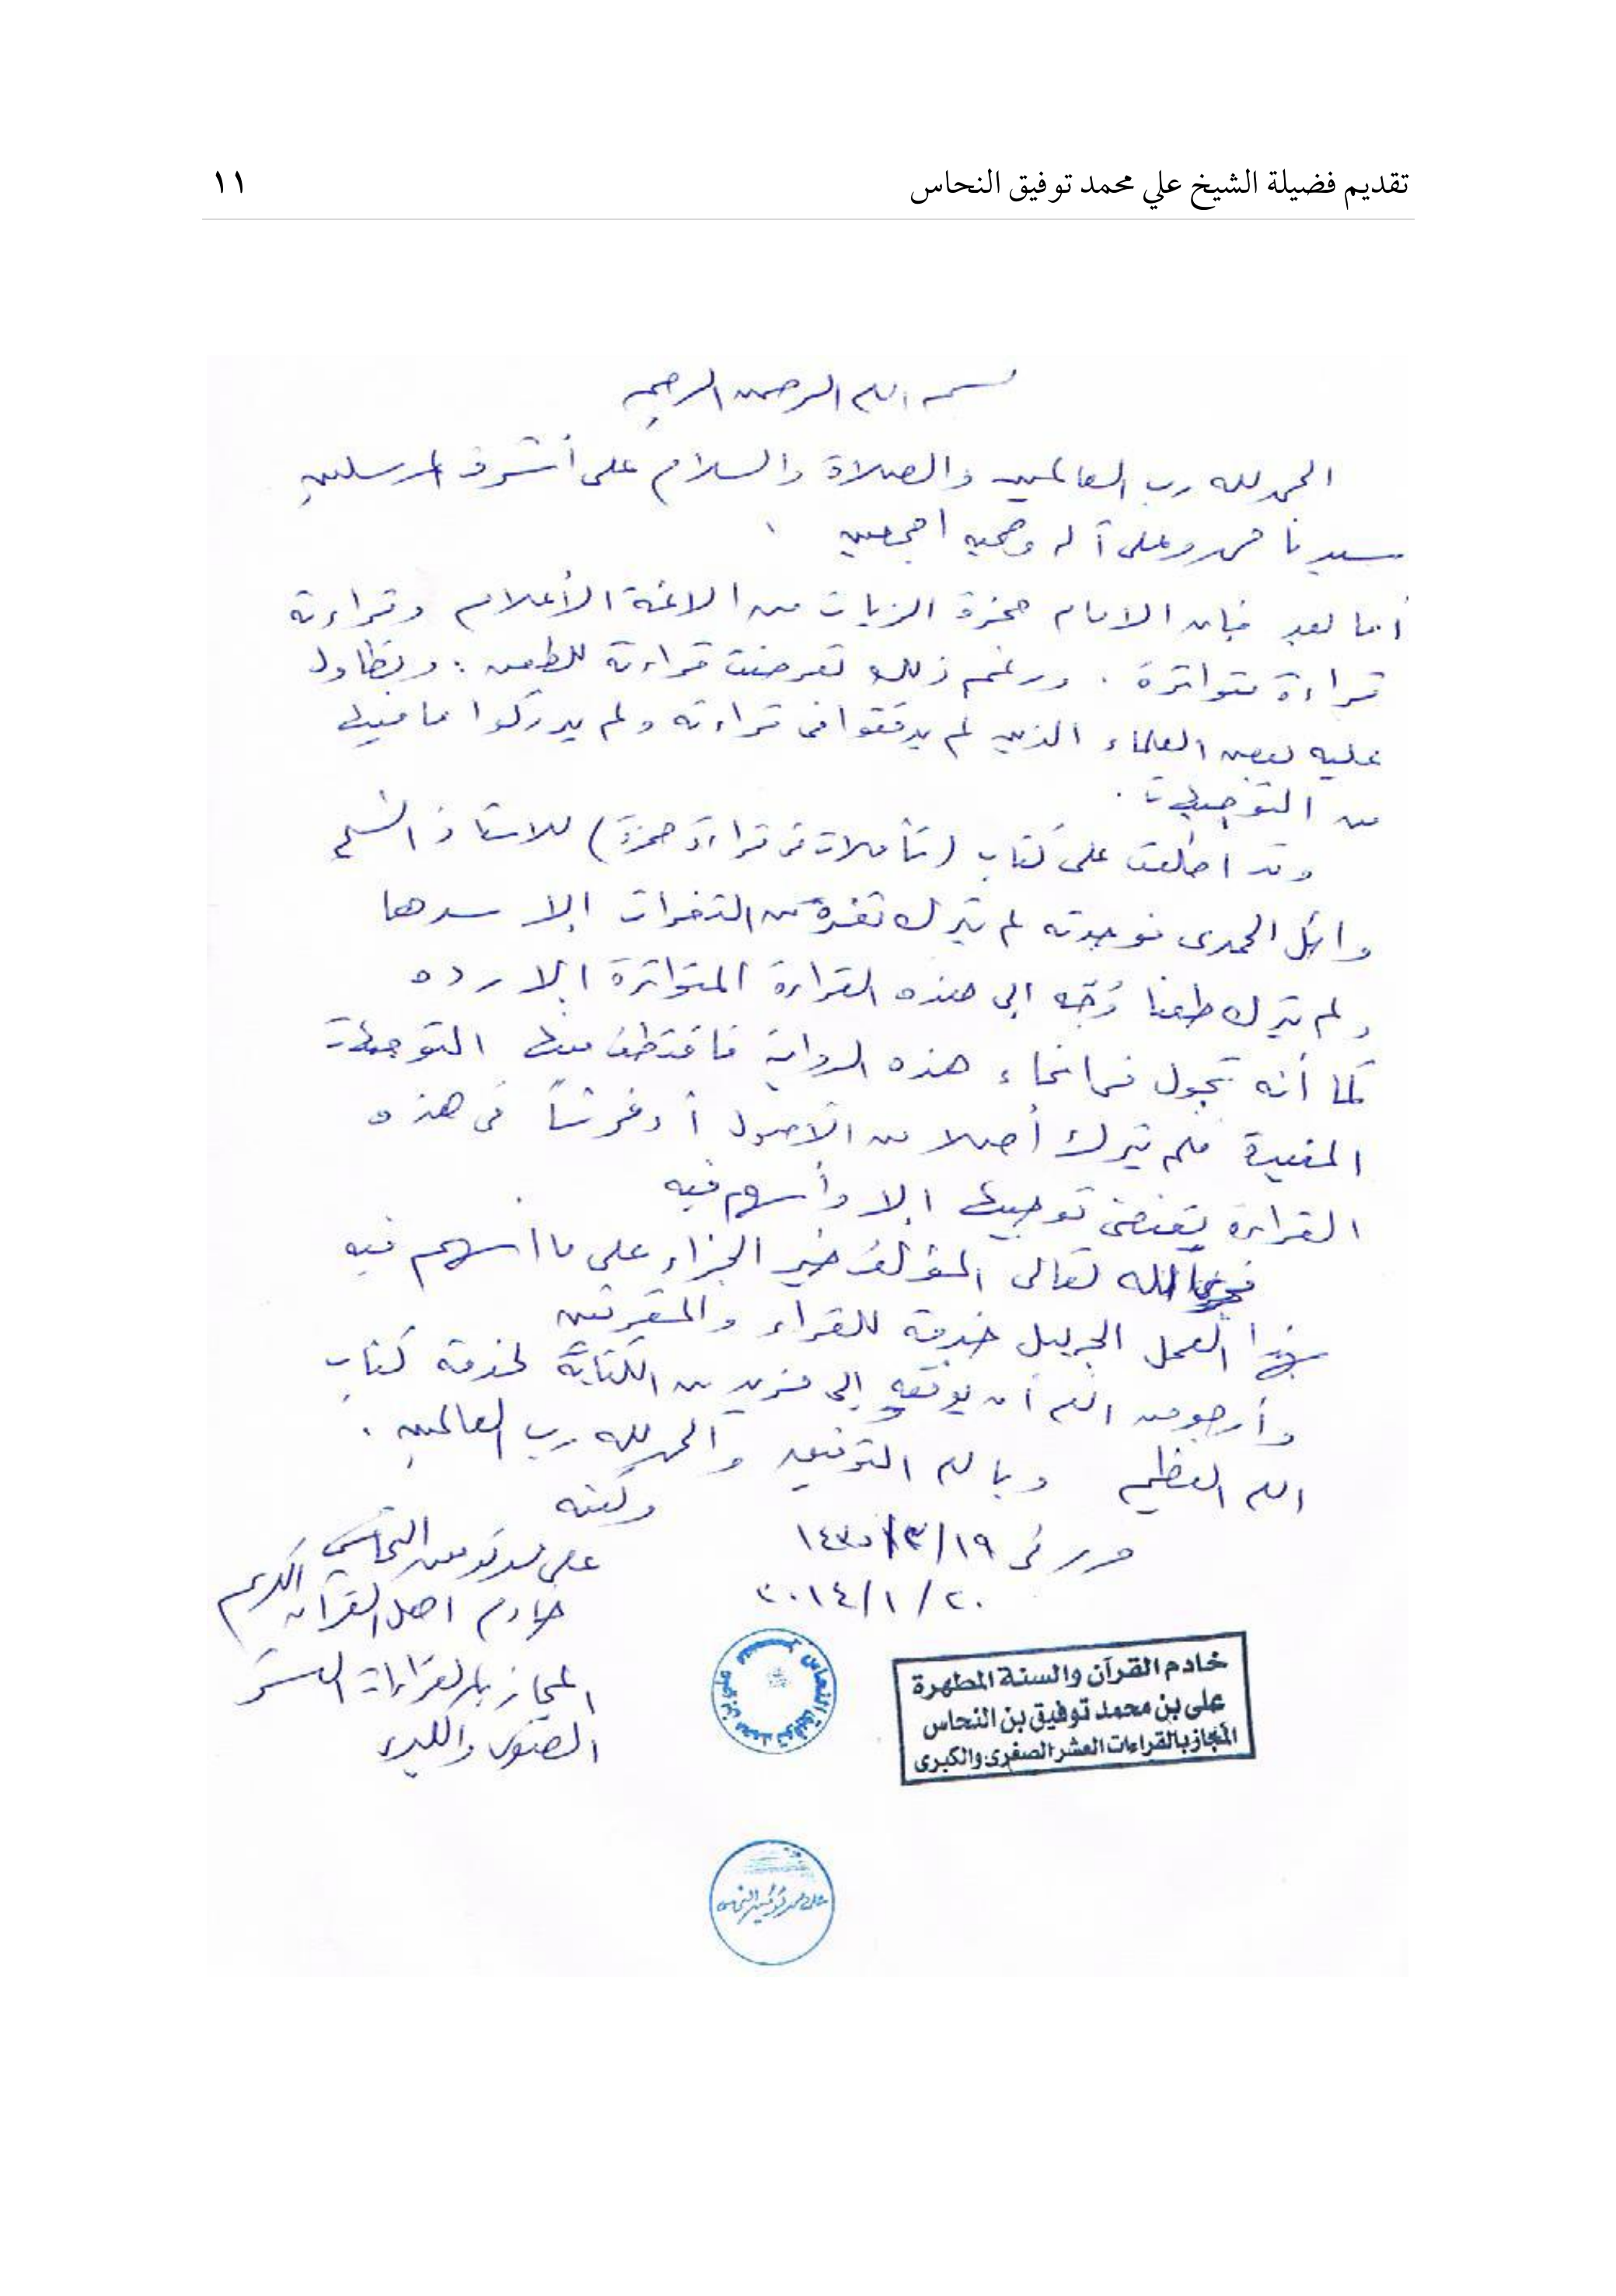 تقديم فضيلة الشيخ علي محمد توفيق النحاس
١١
بسم الله الرحمن الرحيم
الحمد لله رب العالمين والصلاة والسلام على أشرف المرسلين
سيدنا محمد وعلى آله وصحبه اجمعين
أما بعد فإن الامام حمزة الزيات من الائمة الأعلام وقراءته
قراءة متواترة . ورغم ذلك تعرضت قراءته للطعن : وتطاول
عليه بعض العلماء الذين لم يدققوا فى قراءته ولم يدركوا ما فيها
من التوجيهات .
وقد اطلعت على كتاب (تأملات فى قراءة حمزة) للاستاذ الشيخ
وائل الحمدى فوجدته لم يترك ثغرة من الثغرات إلا سدها
ولم يترك طعنا وُجّه إلى هذه القراءة المتواترة إلا رده
كما أنه تجول فى انحاء هذه الرواية فاقتطف منها التوجيهات
المفيدة فلم يترك أصلا من الأصول أو فرشاً فى هذه
القراءة يقتضى توجيها إلا وأسهم فيه
فجزى الله تعالى المؤلف خير الجزاء على ما أسهم فيه
بهذا العمل الجليل خدمة للقراء والمقرئين
وأرجو من الله أن يوفقه إلى مزيد من الكتابة لخدمة كتاب
الله العظيم وبالله التوفيق والحمد لله رب العالمين .
وكتبه
على محمد توفيق النحاس
خادم اهل القرآن الكريم
المجاز بالقراءات العشر
الصغرى والكبرى
حرر فى ١٩/٣/١٤٣٥
٢٠/١/٢٠١٤
خادم القرآن والسنة المطهرة
على بن محمد توفيق بن النحاس
المجاز بالقراءات العشر الصغرى والكبرى
على محمد توفيق النحاس